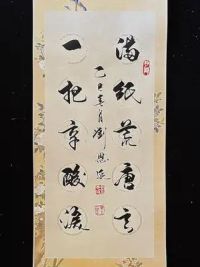 滿紙荒唐言
一把辛酸淚
乙巳春月劉